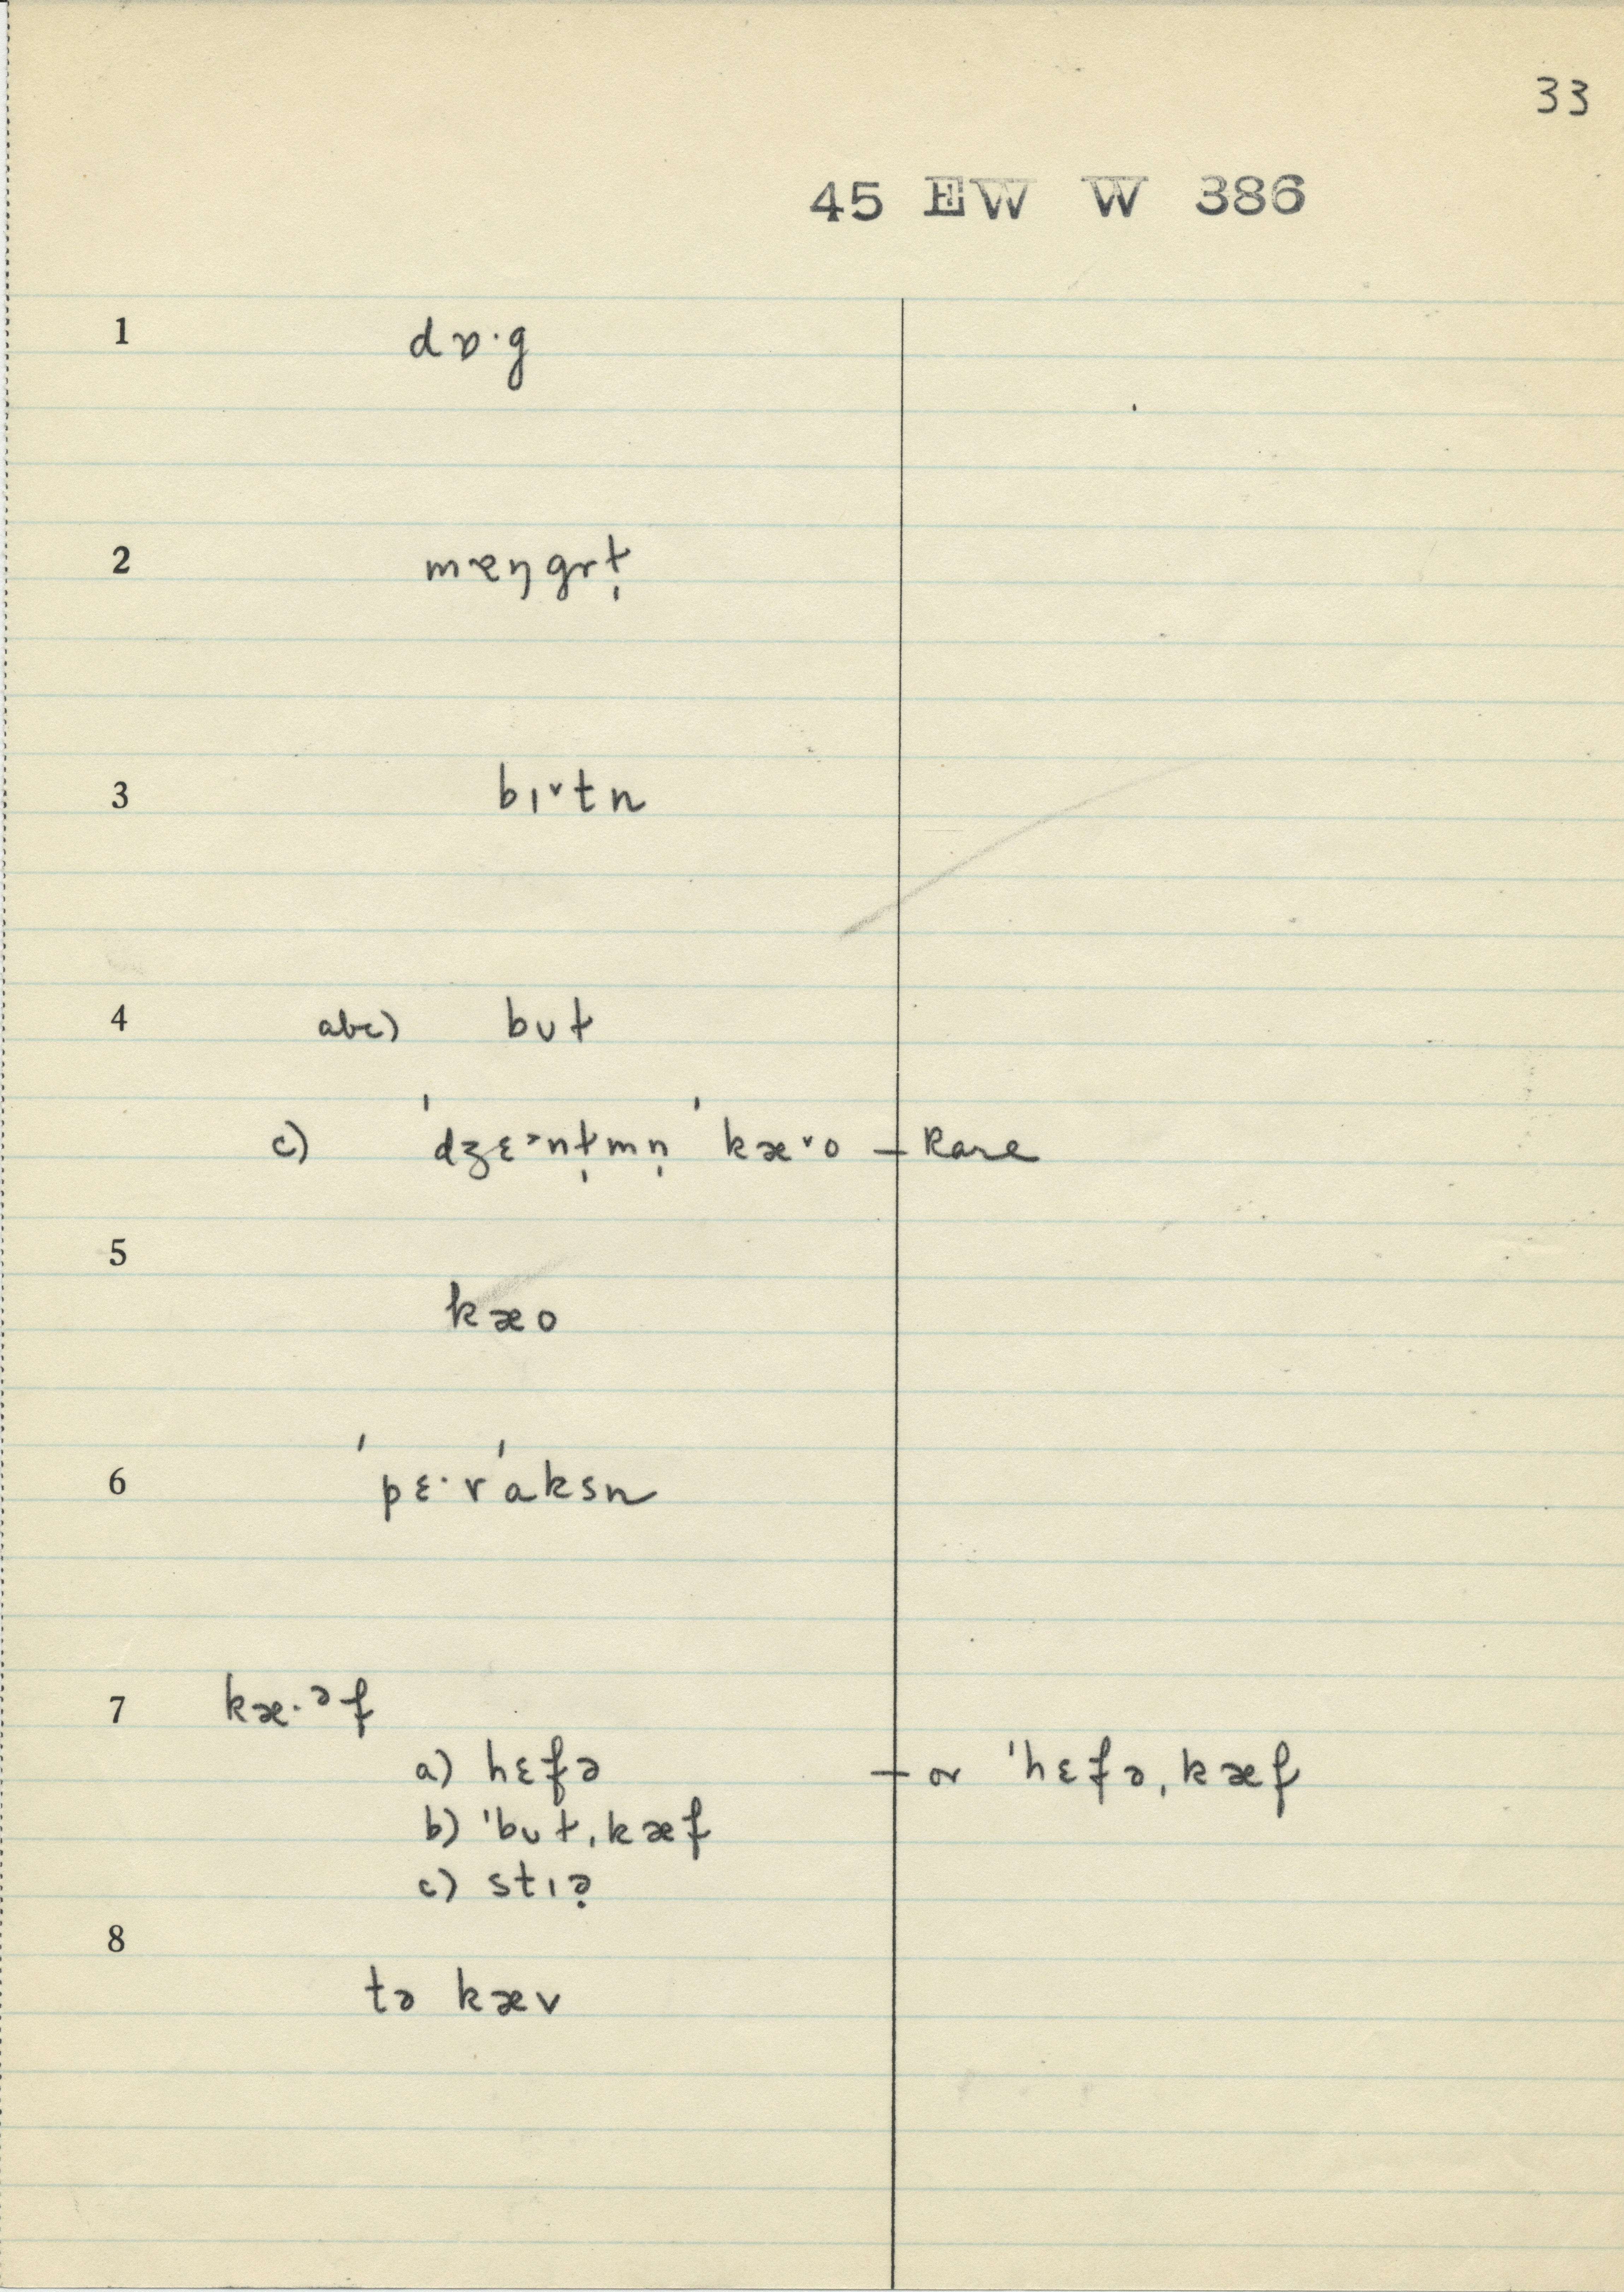 33
45 EW W 386
1 dɒ·g
2 mæŋgrt̩
3 bɪ˅tn
4 abc) bʊt
c) ˈdʒɛ˃nt̩mn̩ ˈkæ˅o — Rare
5 kæo
6 ˈpɛ·rˈaksn
7 kæ·ᵊf
a) hɛfə — or ˈhɛfə,kæf
b) ˈbʊt,kæf
c) stɪə̣
8 tə kæv